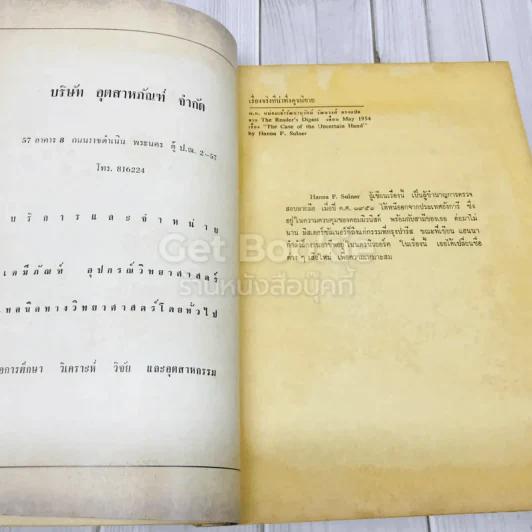 บริษัท อุตสาหภัณฑ์ จำกัด
57 อาคาร 8 ถนนราชดำเนิน พระนคร ตู้ ป.ณ. 2-57
โทร. 816224
บริการและจำหน่าย
เคมีภัณฑ์ อุปกรณ์วิทยาศาสตร์
เทคนิคทางวิทยาศาสตร์โดยทั่วไป
การศึกษา วิเคราะห์ วิจัย และอุตสาหกรรม
เรื่องจริงที่น่าพิศวง
จาก The Reader's Digest เดือน May 1954
เรื่อง "The Case of the Uncertain Hand"
by Hanna F. Sulner
Hanna F. Sulner ผู้เขียนเรื่องนี้ เป็นผู้ชำนาญการตรวจ
สอบลายมือ เมื่อปี ค.ศ. ๑๙๕๐ ได้หนีออกจากประเทศฮังการี ซึ่ง
อยู่ในความควบคุมของคอมมิวนิสต์ พร้อมกับสามีของเธอ ต่อมาไม่
นาน มิสเตอร์ซัลเนอร์ก็ถึงแก่กรรมที่กรุงปารีส ขณะที่เขียน แฮนนา
กำลังมีงานอาชีพอยู่ในนครนิวยอร์ค ในเรื่องนี้ เธอได้เปลี่ยนชื่อ
ต่าง ๆ เสียใหม่ เพื่อความเหมาะสม
Get Book
ร้านหนังสือบุ๊คกี้